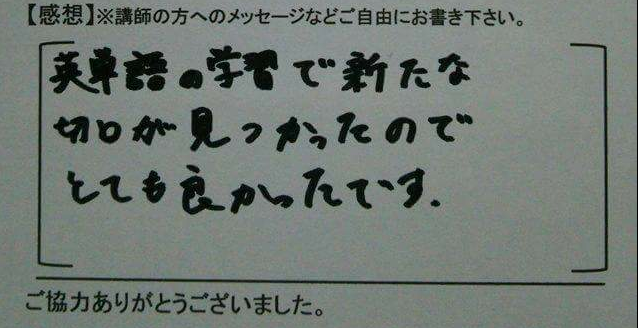 【感想】※講師の方へのメッセージなどご自由にお書き下さい。
英単語の学習で新たな
切口が見つかったので
とても良かったです.
ご協力ありがとうございました。